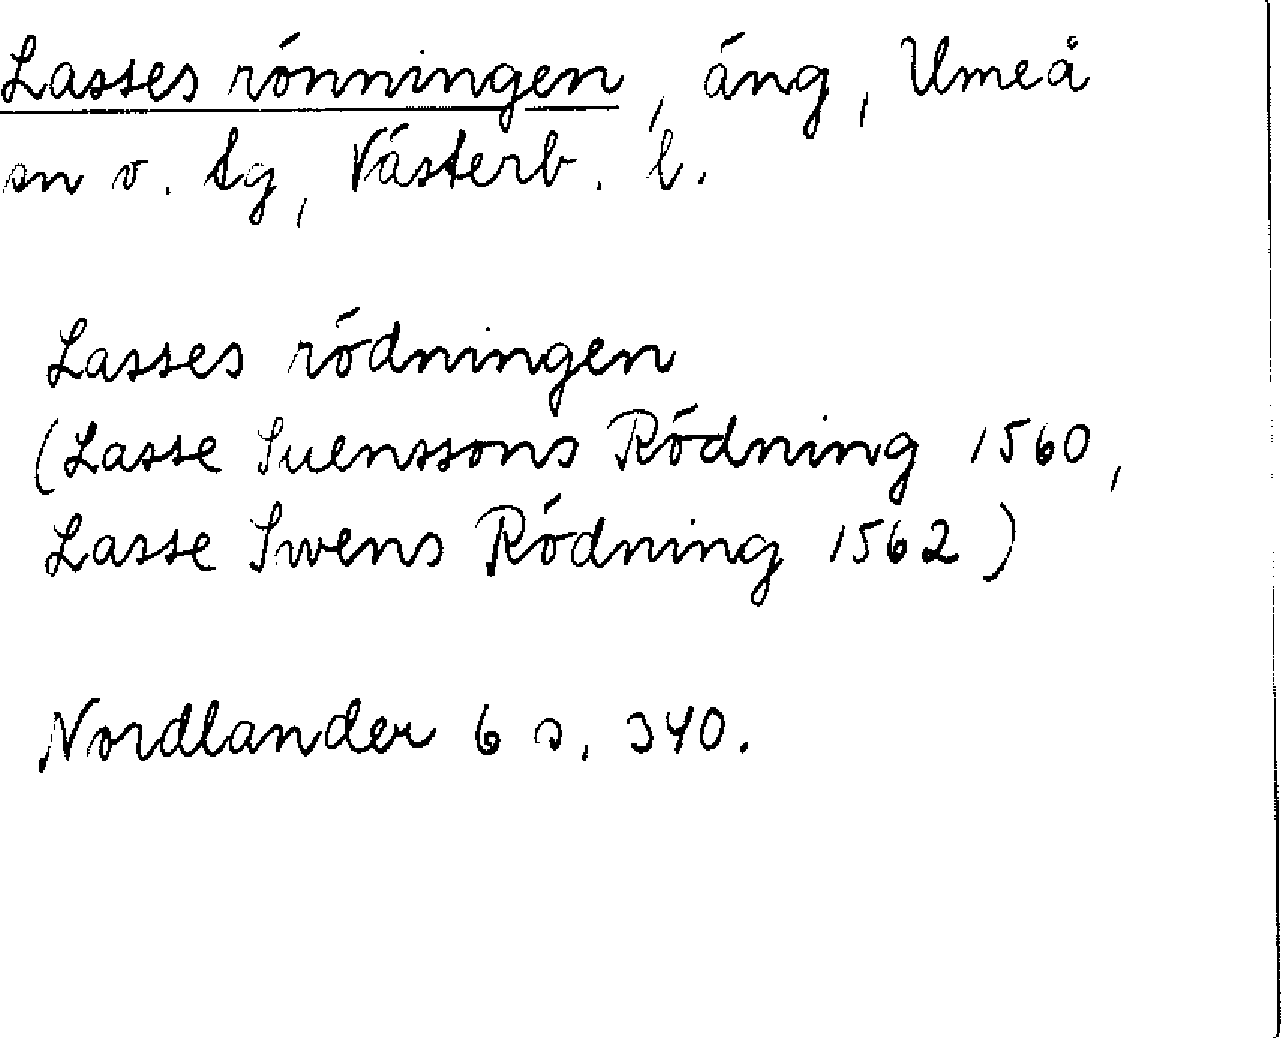 Lasses rönningen, äng, Umeå
sn o. tg, Västerb. l.
Lasses rödningen
(Lasse Suenssons Rödning 1560,
Lasse Swens Rödning 1562)
Nordlander 6 s. 340.